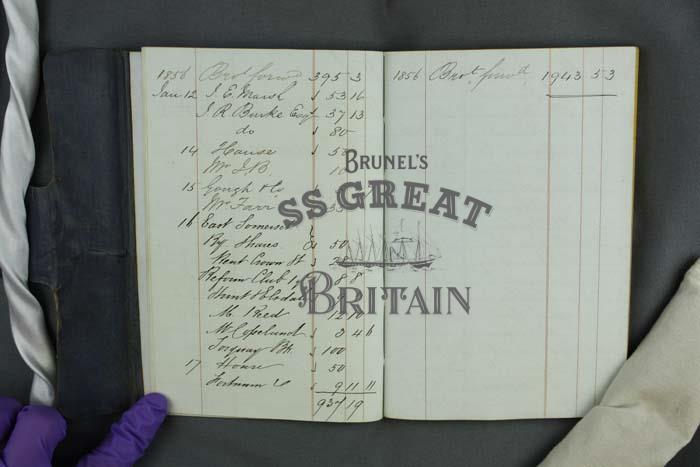 1856 Brot forwd 395 3
Jan 12 J. E. Marsh 53 16
J R Burke Esq 37 13
do 80
14 House 5
Mr J.B. 10
15 Gough & Co
Mr Farr
16 East Somerset
By Shares 50
Rent Crown St 28
Reform Club 8 8
Hunt &
M. Reed 12 10
McCopeland 3 4 6
Torquay Bk. 100
17 House 50
Fortnum 9 11 11
937 19
1856 Brot. forwd. 1943 5 3
BRUNEL'S
SS GREAT
BRITAIN